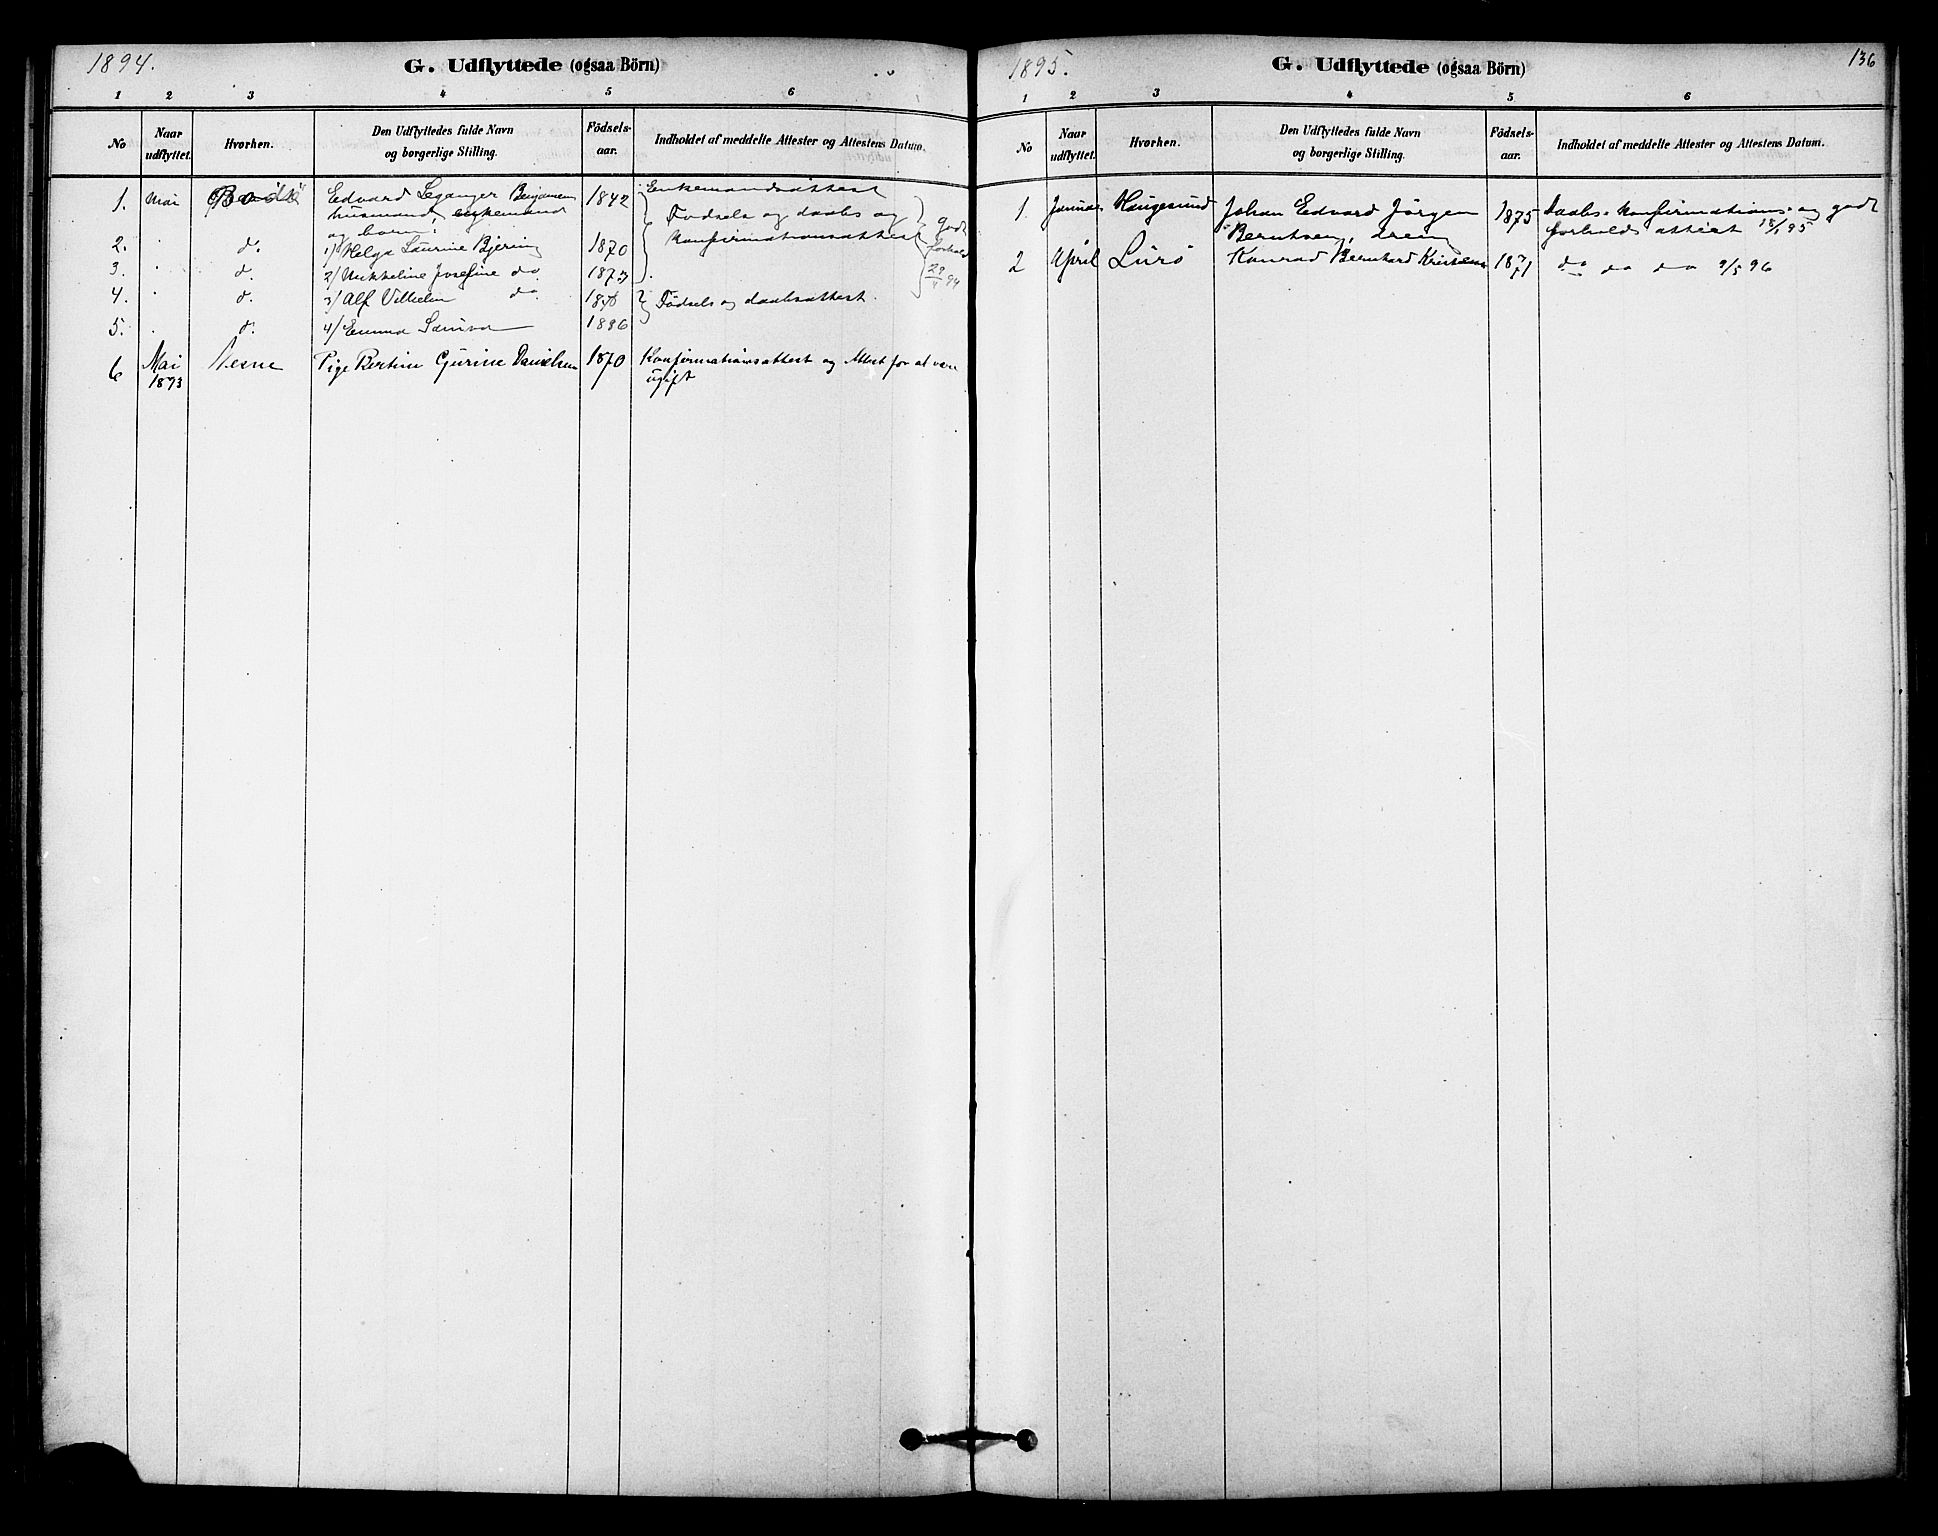 1894.
G. Udflyttede (ogsaa Börn)
1 2 3 4 5 6
No Naar udflyttet. Hvorhen. Den Udflyttedes fulde Navn og borgerlige Stilling. Födsels-aar. Indholdet af meddelte Attester og Attestens Datum.
1. Mai Bodö Edvard Leganger Benjamin 1842 Enkemandsattest
husmand, enkemand
og barn: Fodsels og daabs og godt
2. d. 1) Helga Laurine Bjering 1870 konfirmationsattest forhold
3. d. 2) Mikkeline Josefine do. 1873 29/4 94
4. d. 3) Alf Vilhelm do. Fødsels og daabsattest.
5. d. 4) Emma 1886
6 Mai 1893 Nesne Pige Bertine Gurine Danielsen 1870 Konfirmationsattest og Attest for at være
ugift
1895.
136
G. Udflyttede (ogsaa Börn)
1 2 3 4 5 6
No Naar udflyttet. Hvorhen. Den Udflyttedes fulde Navn og borgerlige Stilling. Födsels-aar. Indholdet af meddelte Attester og Attestens Datum.
1. Januar Haugesund Johan Edvard Jörgen 1875 Daabs- konfirmations- og godt
Berntsen, dreng forholds attest 18/1 95
2 April Lurö Konrad Bernhard Kristensen 1871 do do do 9/5 96